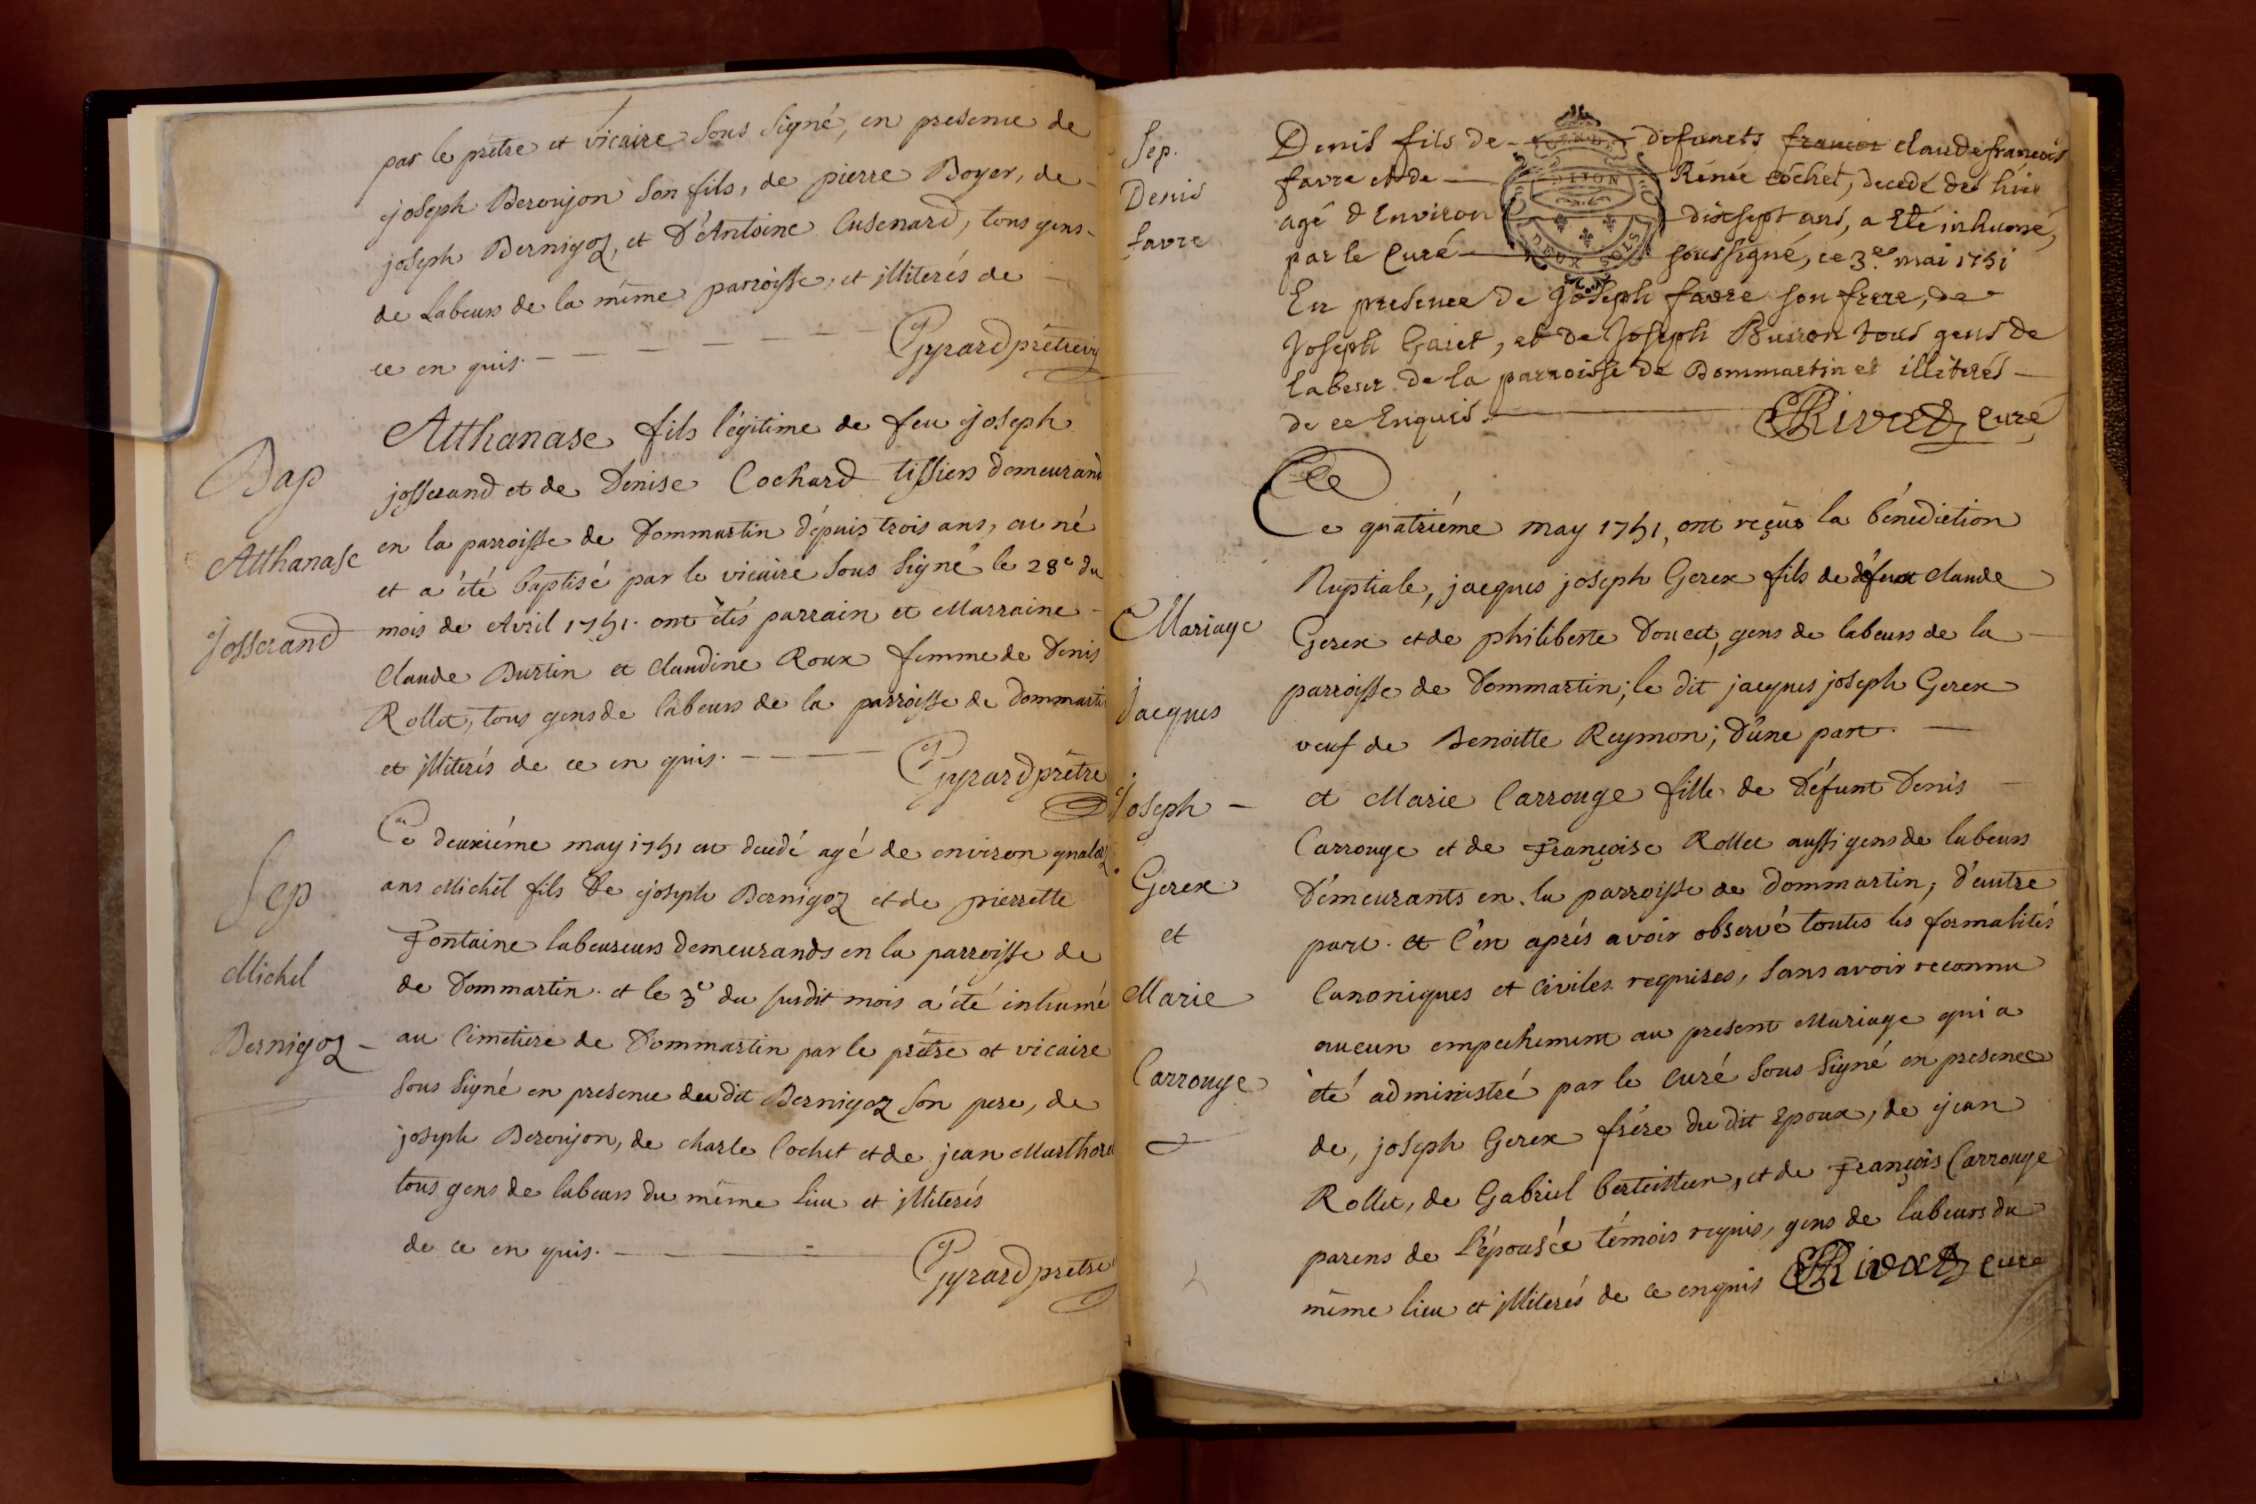 par le prêtre et vicaire sous signé, en presence de
joseph Beroujon son fils, de pierre Boyer, de
joseph Bernigoz, et d'Antoine Cusenard, tous gens
de labeurs de la même parroisse, et illiterés de
ce en quis.
Gyrard prêtre vic
Bap
Atthanase
Josserand
Atthanase fils légitime de feu joseph
josserand et de Denise Cochard tissiers demeurand
en la parroisse de Dommartin dépuis trois ans, est né
et a été baptisé par le vicaire sous signé le 28e du
mois de Avril 1751. ont étés parrain et Marraine
Claude Burtin et Claudine Roux femme de Denis
Rollet, tous gens de labeurs de la parroisse de dommarti
et illiterés de ce en quis.
Gyrard prêtre
Sep
Michel
Bernigoz
Ce deuxiéme may 1751 est decedé agé de environ
ans Michel fils de joseph Bernigoz et de pierrette
Fontaine laboureurs demeurands en la parroisse de
de Dommartin. et le 3e du susdit mois a été inhumé
au Cimetiere de Dommartin par le prêtre et vicaire
sous signé en presence du dit Bernigoz son pere, de
joseph Beroujon, de charle Cochet et de jean
tous gens de labeurs du même lieu et illiterés
de ce en quis.
Gyrard prêtre
Sep.
Denis
favre
Denis fils de defuncts claude francois
favre et de Rénée Cochet, decedé des hier
agé d'Environ dixsept ans, a Eté inhumé,
par le Curé soussigné, ce 3e mai 1751
En presence de Joseph favre son frere, de
Joseph Gaiet, et de Joseph Buiron tous gens de
labeur de la parroisse de Dommartin et illiterés
de ce Enquis.
Rivet curé
DIJON
DEUX SOLS
Mariage
Jacques
Joseph
Gerex
et
Marie
Carrouge
Ce quatriéme may 1751, ont reçus la bénédiction
Nuptiale, jacques joseph Gerex fils de défunt claude
Gerex et de philiberte Doucet, gens de labeurs de la
parroisse de Dommartin; le dit jacques joseph Gerex
veuf de Benoitte Reymon; d'une part.
et Marie Carrouge fille de Défunt Denis
Carrouge et de Françoise Rollet aussi gens de labeurs
Démeurants en la parroisse de dommartin, d'autre
part. et c'en aprés avoir observé toutes les formalités
Canoniques et civiles requises, sans avoir reconnu
aucun empechement au present Mariage qui a
été administré par le curé sous signé en presence
de, joseph Gerex frére du dit epoux, de jean
Rollet, de Gabriel, et de François Carrouge
parens de l'épousée témois requis, gens de labeurs du
même lieu et illiterés de ce enquis Rivet curé